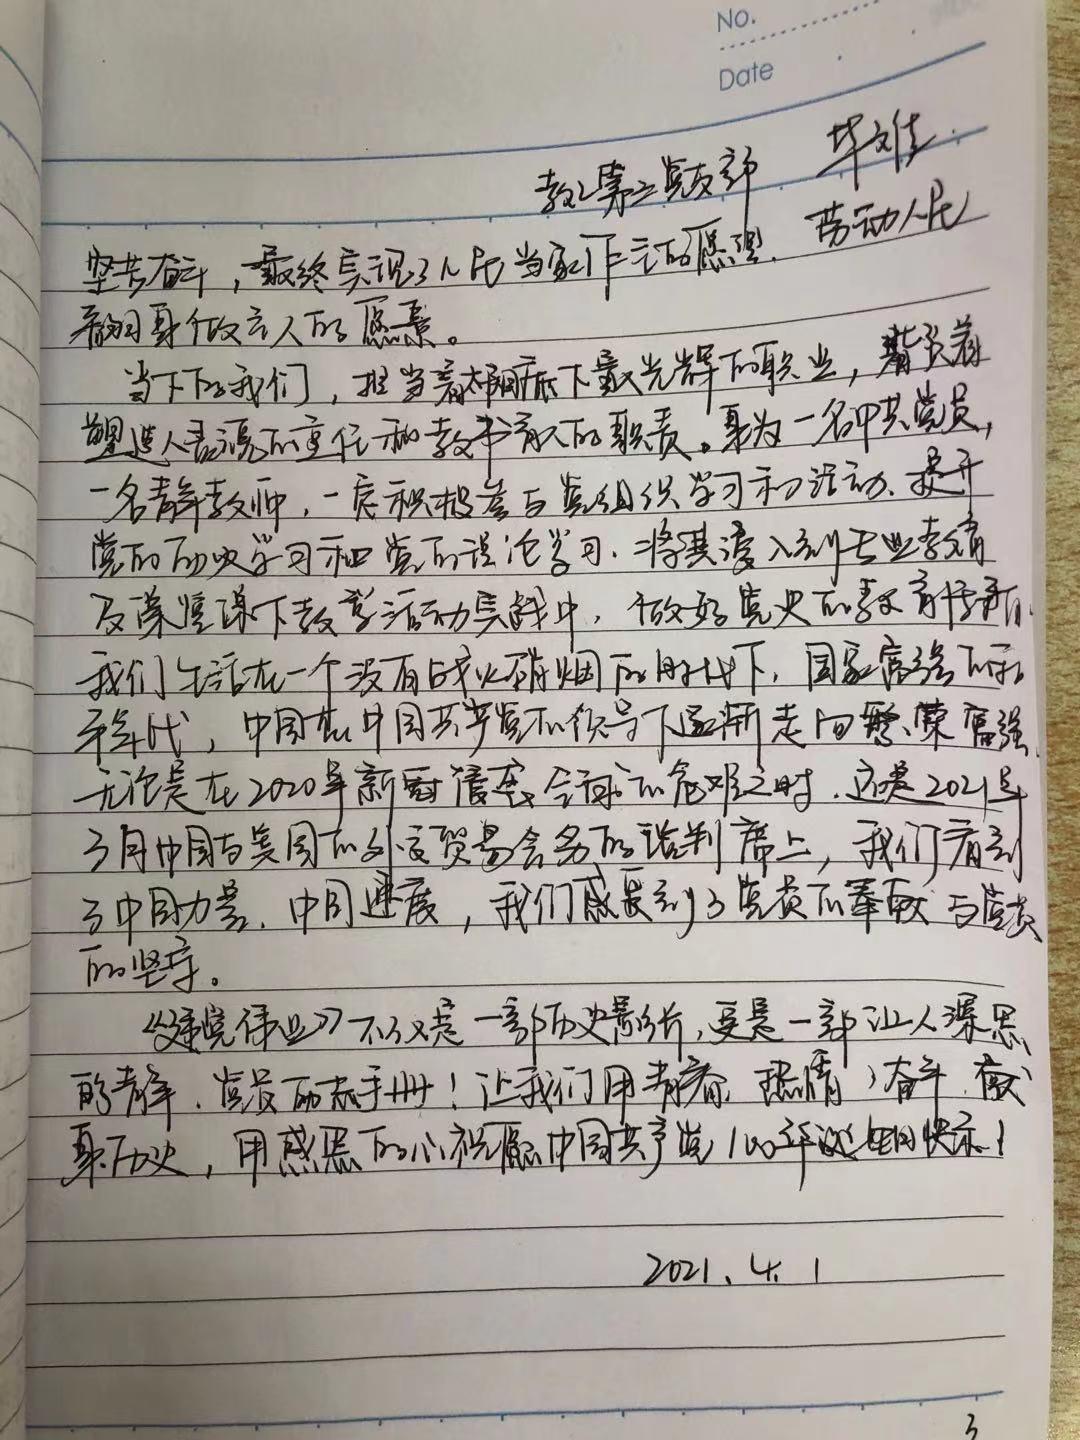 No.
Date
教工第二党支部 毕文佳
坚苦奋斗，最终实现了人民当家作主的愿望、劳动人民
翻身做主人的愿景。
当下的我们，担当着太阳底下最光辉的职业，背负着
塑造人灵魂的重任和教书育人的职责。身为一名中共党员，
一名青年教师，一定积极参与党组织学习和活动、提升
党的历史学习和党的理论学习、将其浸入到专业教育
及课堂课下教学活动实践中，做好党史的教育传播。
我们生活在一个没有战火硝烟的时代下，国家富强的和
平年代，中国在中国共产党的领导下逐渐走向繁荣富强、
无论是在2020年新冠侵袭全球的危难之时、还是2021年
3月中国与美国的外交贸易会务的谈判席上，我们看到
了中国力量、中国速度，我们感受到了党员的奉献与党员
的坚守。
《建党伟业》不仅是一部历史影片，更是一部让人深思
的青年、党员励志手册！让我们用青春、热情、奋斗、献
身历史，用感恩的心祝愿中国共产党100年生日快乐！
2021.4.1
3